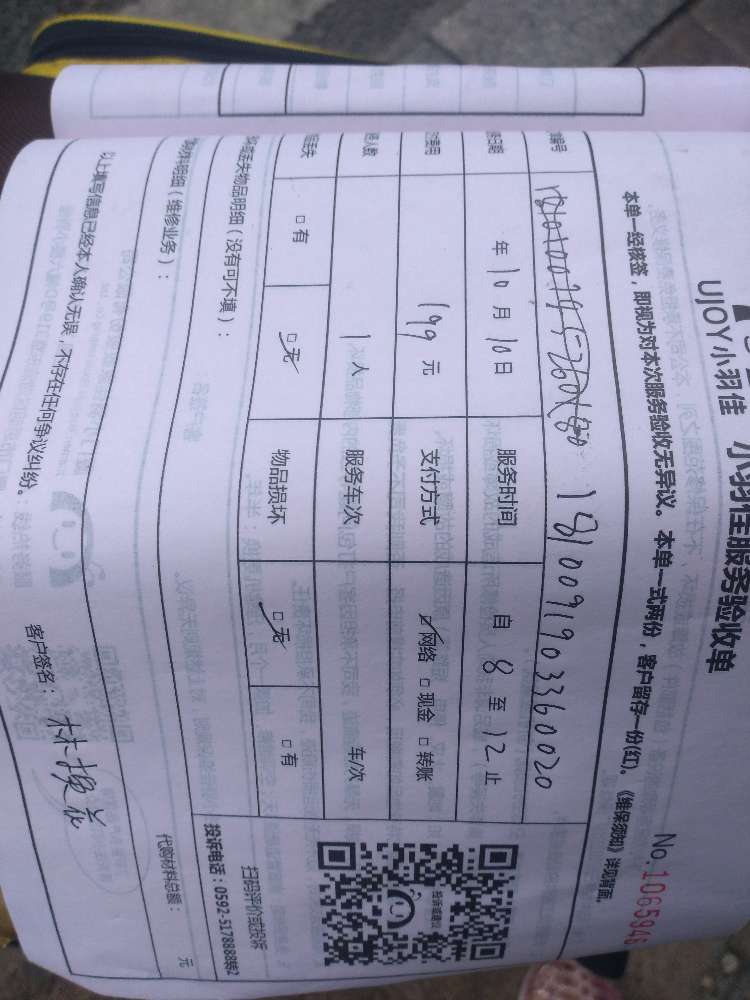 UJOY小羽佳 小羽佳服务验收单
No.1065946
本单一经核签，即视为对本次服务验收无异议。本单一式两份，客户留存一份(红)。《维保须知》详见背面。
编号 1810091903360020
日期 年10月10日 服务时间 自8至12止
费用 199元 支付方式 ☑网络 □现金 □转账
人数 1人 服务车次 车/次
丢失 □有 ☑无 物品损坏 ☑无 □有
丢失物品明细（没有可不填）：
投诉或建议
扫码评价或投诉
投诉电话：0592-5178888转2
材料明细（维修业务）：
代购材料总额： 元
以上填写信息已经本人确认无误，不存在任何争议纠纷。
客户签名：